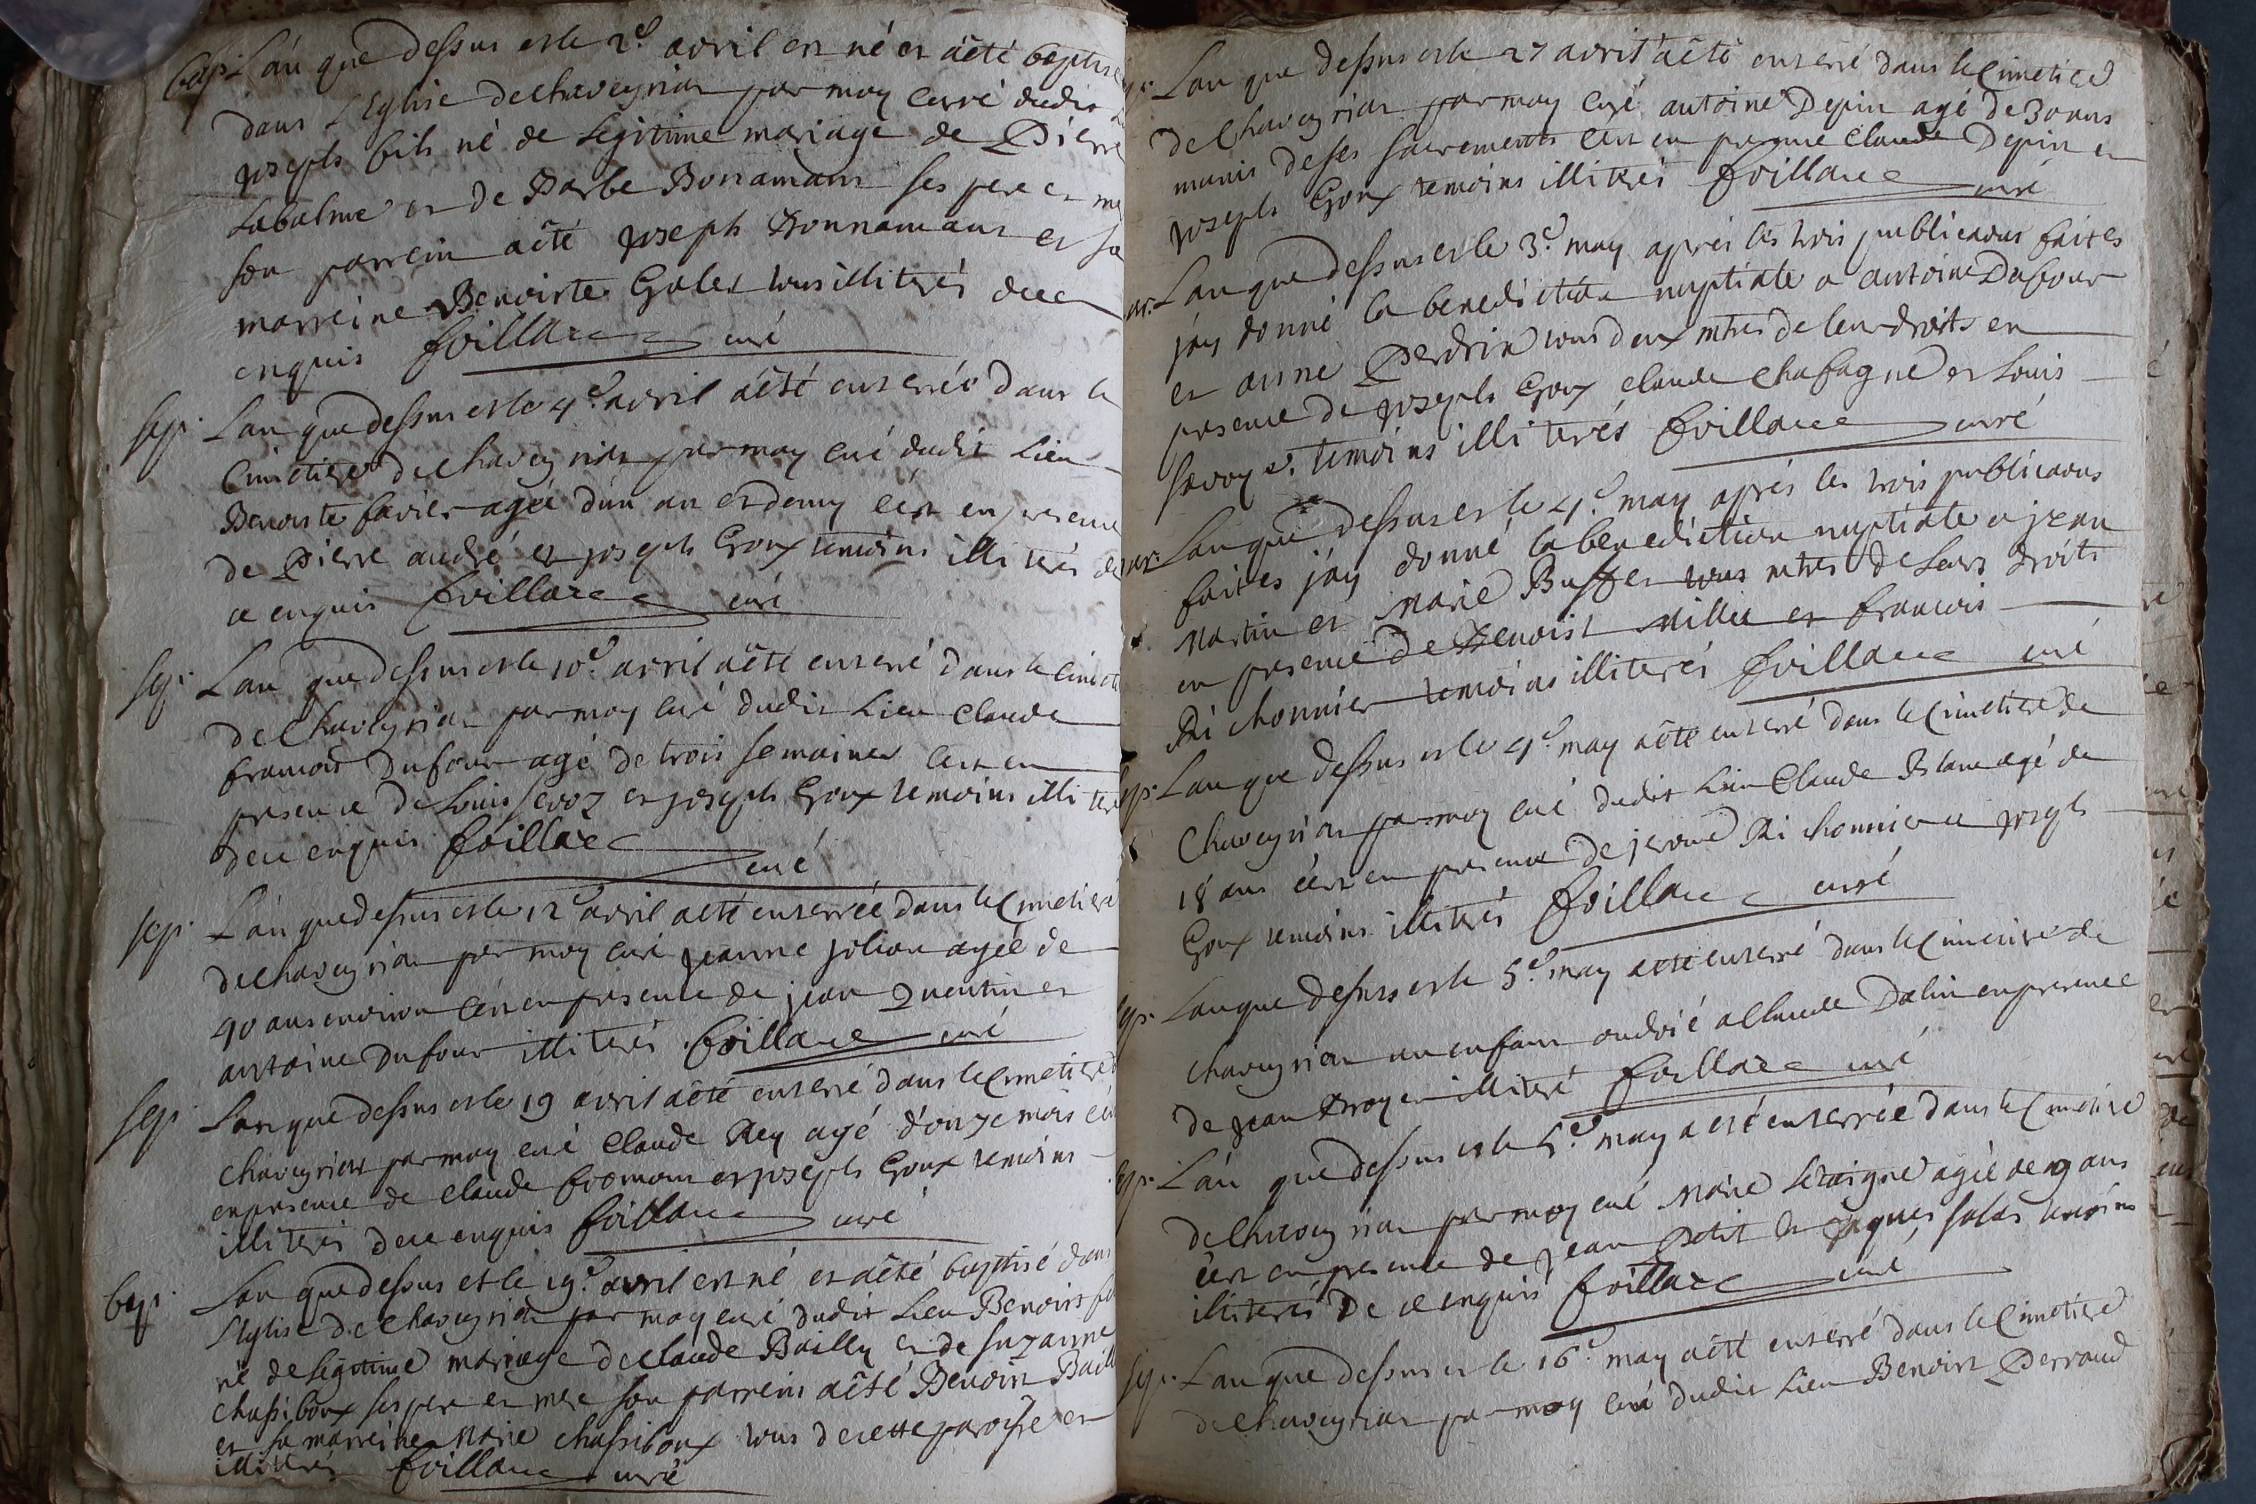 bap. L'an que dessus et le 2e avril est né et a êté baptisé
dans l'Eglise de chaveyriat par moy curé dudit
joseph fils né de legitime mariage de Pierre
Labalme et de Barbe Bonamant ses pere et me
son parrein a êté joseph Bonnamant et sa
marreine Benoiste Galet tous illiterés de ce
enquis foillare curé
sep. L'an que dessus et le 4e avril a êté enterrée dans le
Cimetiere de chaveyriat par moy curé dudit Lieu
Benoiste favier agée d'un an et demy c'est en presence
de Pierre andré et joseph Goux temoins illiterés de
ce enquis foillare curé
sep. L'an que dessus et le 10e avril a êté enterré dans le Cimet
de Chaveyriat par moy curé dudit Lieu Claude
francois Dufour agé de trois semaines c'est en
presence de Louis Sevoz et joseph Goux temoins illiter
de ce enquis foillare curé
sep. L'an que dessus et le 12e avril a êté enterrée dans le Cimetiere
de chaveyriat par moy curé jeanne jolion agée de
40 ans environ c'est en presence de jean Quentin et
antoine Dufour illiterés foillare curé
sep. L'an que dessus et le 19 avril a êté enterré dans le Cimetiere
chaveyriat par moy curé Claude Rey agé d'onze mois c'e
en presence de Claude fromont et joseph Goux temoins
illiterés de ce enquis foillare curé
bap. L'an que dessus et le 19e avril est né et a êté baptisé dans
l'Eglise de chaveyriat par moy curé dudit Lieu Benoist fi
né de legitime mariage de Claude Bailly et de Suzanne
chassiboux ses pere et mere son parrein a êté Benoist Baill
et sa marreine Marie chassiboux tous de cette paroisse et
illiterés foillare curé
L'an que dessus et le 27 avril a êté enterré dans le Cimetiere
de Chaveyriat par moy curé antoine Depin agé de 30 ans
munis de ses sacrements c'est en presence Claude Depin et
joseph Goux temoins illiterés foillare curé
ar. L'an que dessus et le 3e may aprés les trois publicaons faites
j'ay donné la benediction nuptiale a antoine Dufour
et anne Perdrix tous deux mtres de leur droits en
presence de joseph Goux claude chafagne et Louis
Savoye. temoins illiterés foillare curé
mar. L'an que dessus et le 4e may aprés les trois publicaons
faites j'ay donné la benediction nuptiale a jean
Martin et Marie Buffet tous mtres de leurs droits
en presence de Benoist Millet et francois
Richonnier temoins illiterés foillare curé
sep. L'an que dessus et le 4e may a êté enterré dans le Cimetiere de
Chaveyriat par moy curé dudit Lieu Claude Blanc agé de
18 ans c'est en presence de jerome Richonnier et joseph
Goux temoins illiterés foillare curé
sep. L'an que dessus et le 5e may a êté enterré dans le Cimetiere de
chaveyriat un enfant ondoié a Claude Dalin en presence
de jean Broyer illiteré foillare curé
sep. L'an que dessus et le 5e may a êté enterrée dans le Cimetiere
de Chaveyriat par moy curé Marie agée de 19 ans
c'est en presence de jean Petit et jaques temoins
illiterés De ce enquis foillare curé
sep. L'an que dessus et le 16e may a êté enterré dans le Cimetiere
de Chaveyriat par moy curé dudit Lieu Benoist Perraud